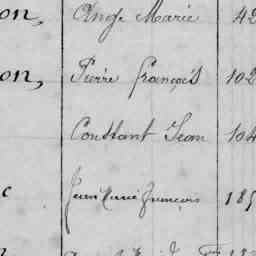 on, Ange Marie 42
on, Pierre François 102
Constant Jean 104
c Jean Marie François 185